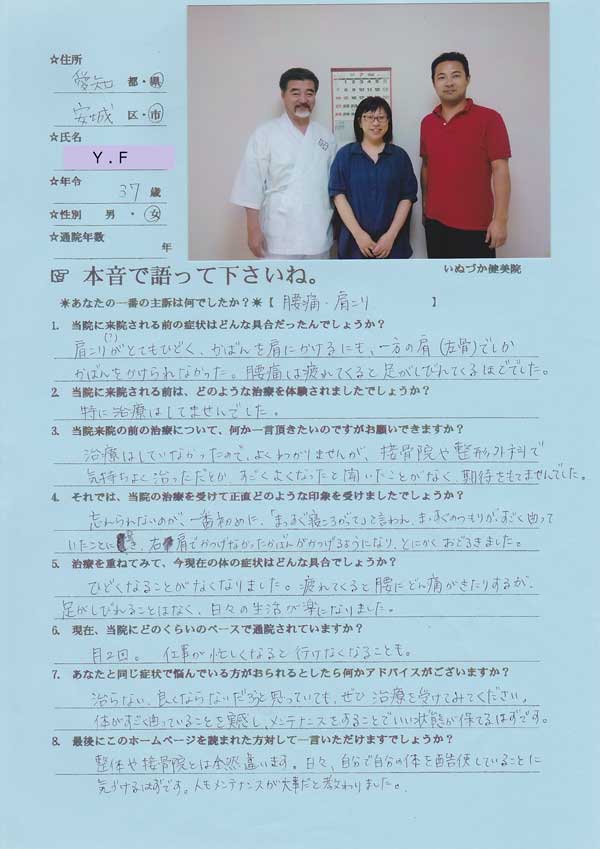 ☆住所
愛知 都・県
安城 区・市
☆氏名
Y.F
☆年令
37 歳
☆性別 男・女
☆通院年数
年
いぬづか健美院
☞ 本音で語って下さいね。
＊あなたの一番の主訴は何でしたか？＊【 腰痛・肩こり 】
1. 当院に来院される前の症状はどんな具合だったんでしょうか？
肩こりがとてもひどく、かばんを肩にかけるにも、一方の肩（左骨）でしか
かばんをかけられなかった。腰痛は疲れてくると足がしびれてくるほどでした。
2. 当院に来院される前は、どのような治療を体験されましたでしょうか？
特に治療はしてませんでした。
3. 当院来院の前の治療について、何か一言頂きたいのですがお願いできますか？
治療はしていなかったので、よくわかりませんが、接骨院や整形外科で
気持ちよく治っただとか、すごくよくなったと聞いたことがなく、期待をもてませんでした。
4. それでは、当院の治療を受けて正直どのような印象を受けましたでしょうか？
忘れられないのが、一番初めに、「まっすぐ寝ころがって」と言われ、まっすぐのつもりがすごく曲って
いたことに驚き、右肩でかつげなかったかばんがかつげるようになり、とにかくおどろきました。
5. 治療を重ねてみて、今現在の体の症状はどんな具合でしょうか？
ひどくなることがなくなりました。疲れてくると腰にどん痛がきたりするが、
足がしびれることはなく、日々の生活が楽になりました。
6. 現在、当院にどのくらいのペースで通院されていますか？
月2回。 仕事が忙しくなると行けなくなることも。
7. あなたと同じ症状で悩んでいる方がおられるとしたら何かアドバイスがございますか？
治らない、良くならないだろうと思っていても、ぜひ治療を受けてみてください。
体がすごく曲っていることを実感し、メンテナンスをすることでいい状態が保てるはずです。
8. 最後にこのホームページを読まれた方対して一言いただけますでしょうか？
整体や接骨院とは全然違います。日々、自分で自分の体を酷使していることに
気づけるはずです。人もメンテナンスが大事だと教わりました。